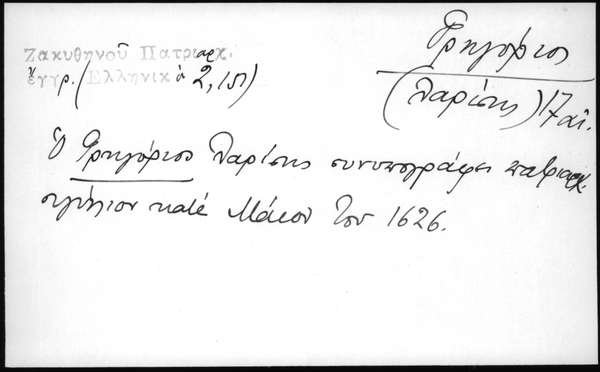 Ζακυθηνοῦ Πατριαρχ.
ἔγγρ. (Ἑλληνικά 2, 151)
Γρηγόριος
(Λαρίσης) 17 αἰ.
Ὁ Γρηγόριος Λαρίσης συνυπογράφει πατριαρχ.
σιγίλιον κατά Μάιον τοῦ 1626.